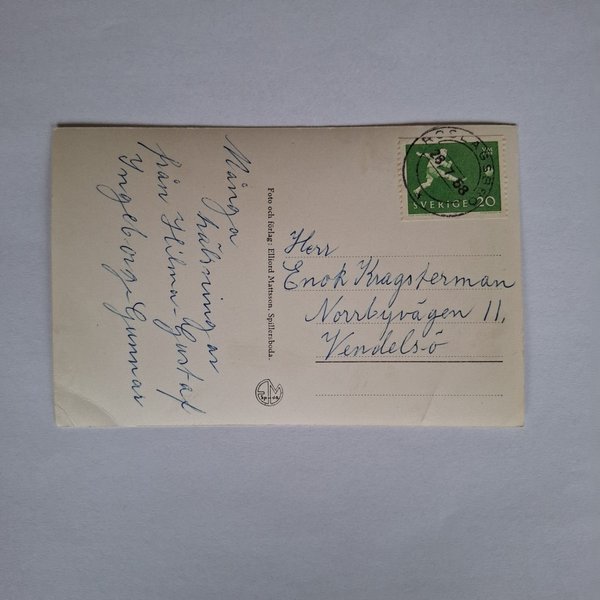 Många
hälsningar
från Hilma-Gustaf
Ingeborg-Gunnar
Foto och förlag: Elliord Mattsson, Spillersboda.
SVERIGE 20
18.7.58
Herr
Enok Kragsterman
Norrbyvägen 11,
Vendelsö